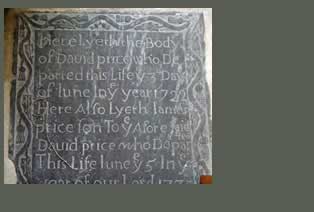 Here Lyeth the Body
of David price who De
parted this Life ye 3 Day
of Iune In ye year
Here Also Lyeth Iames
price son To ye Afore said
David price who Depar
This Life Iune ye 5 In ye
year of our Lord